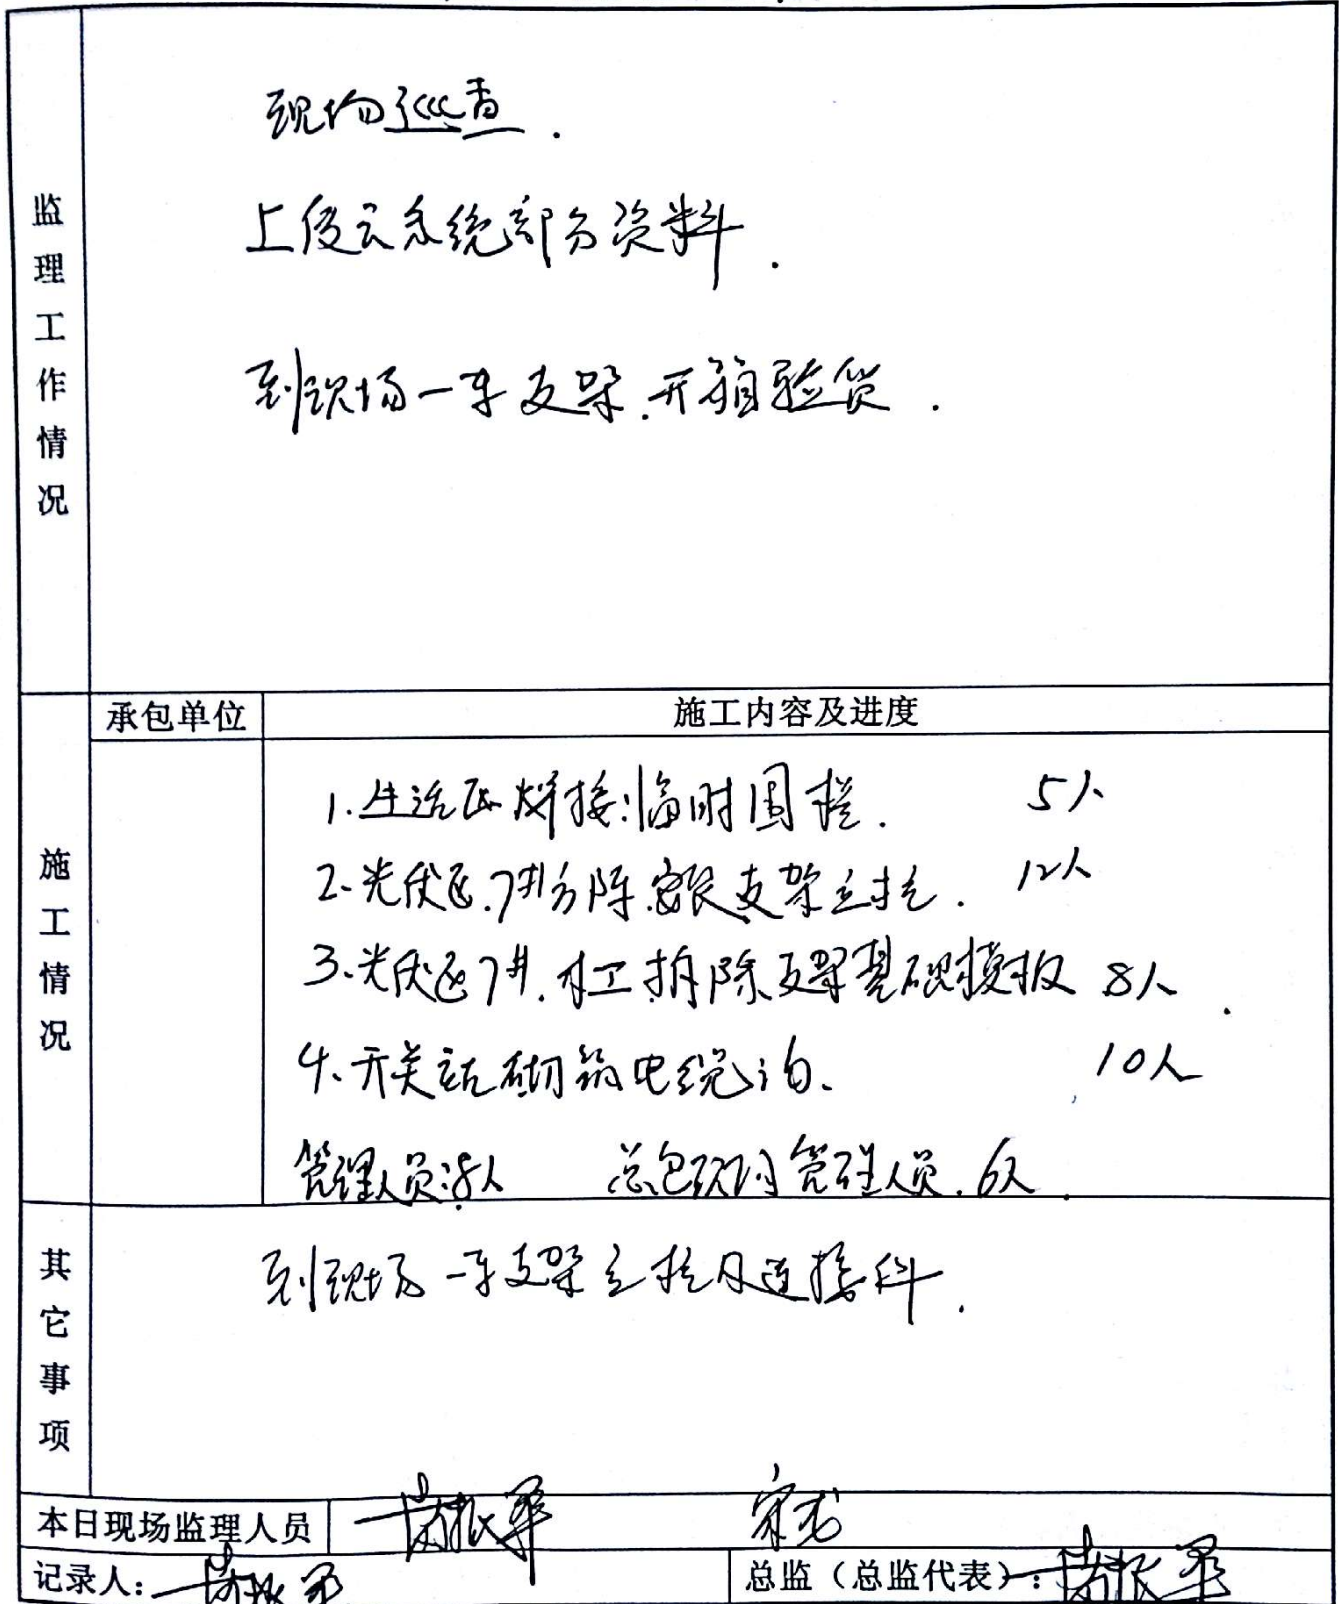 监理工作情况
现场巡查.
上传云系统部分资料.
到现场一车支架.开箱验货.
承包单位
施工内容及进度
施工情况
1.生活区焊接临时围栏. 5人
2.光伏区.7#方阵.安装支架立柱. 12人
3.光伏区7#.木工拆除支架基础模板 8人.
4.开关站砌筑电缆沟. 10人
管理人员:8人 总包项目管理人员.6人.
其它事项
到现场一车支架立柱及连接件.
本日现场监理人员
记录人:
总监（总监代表）: